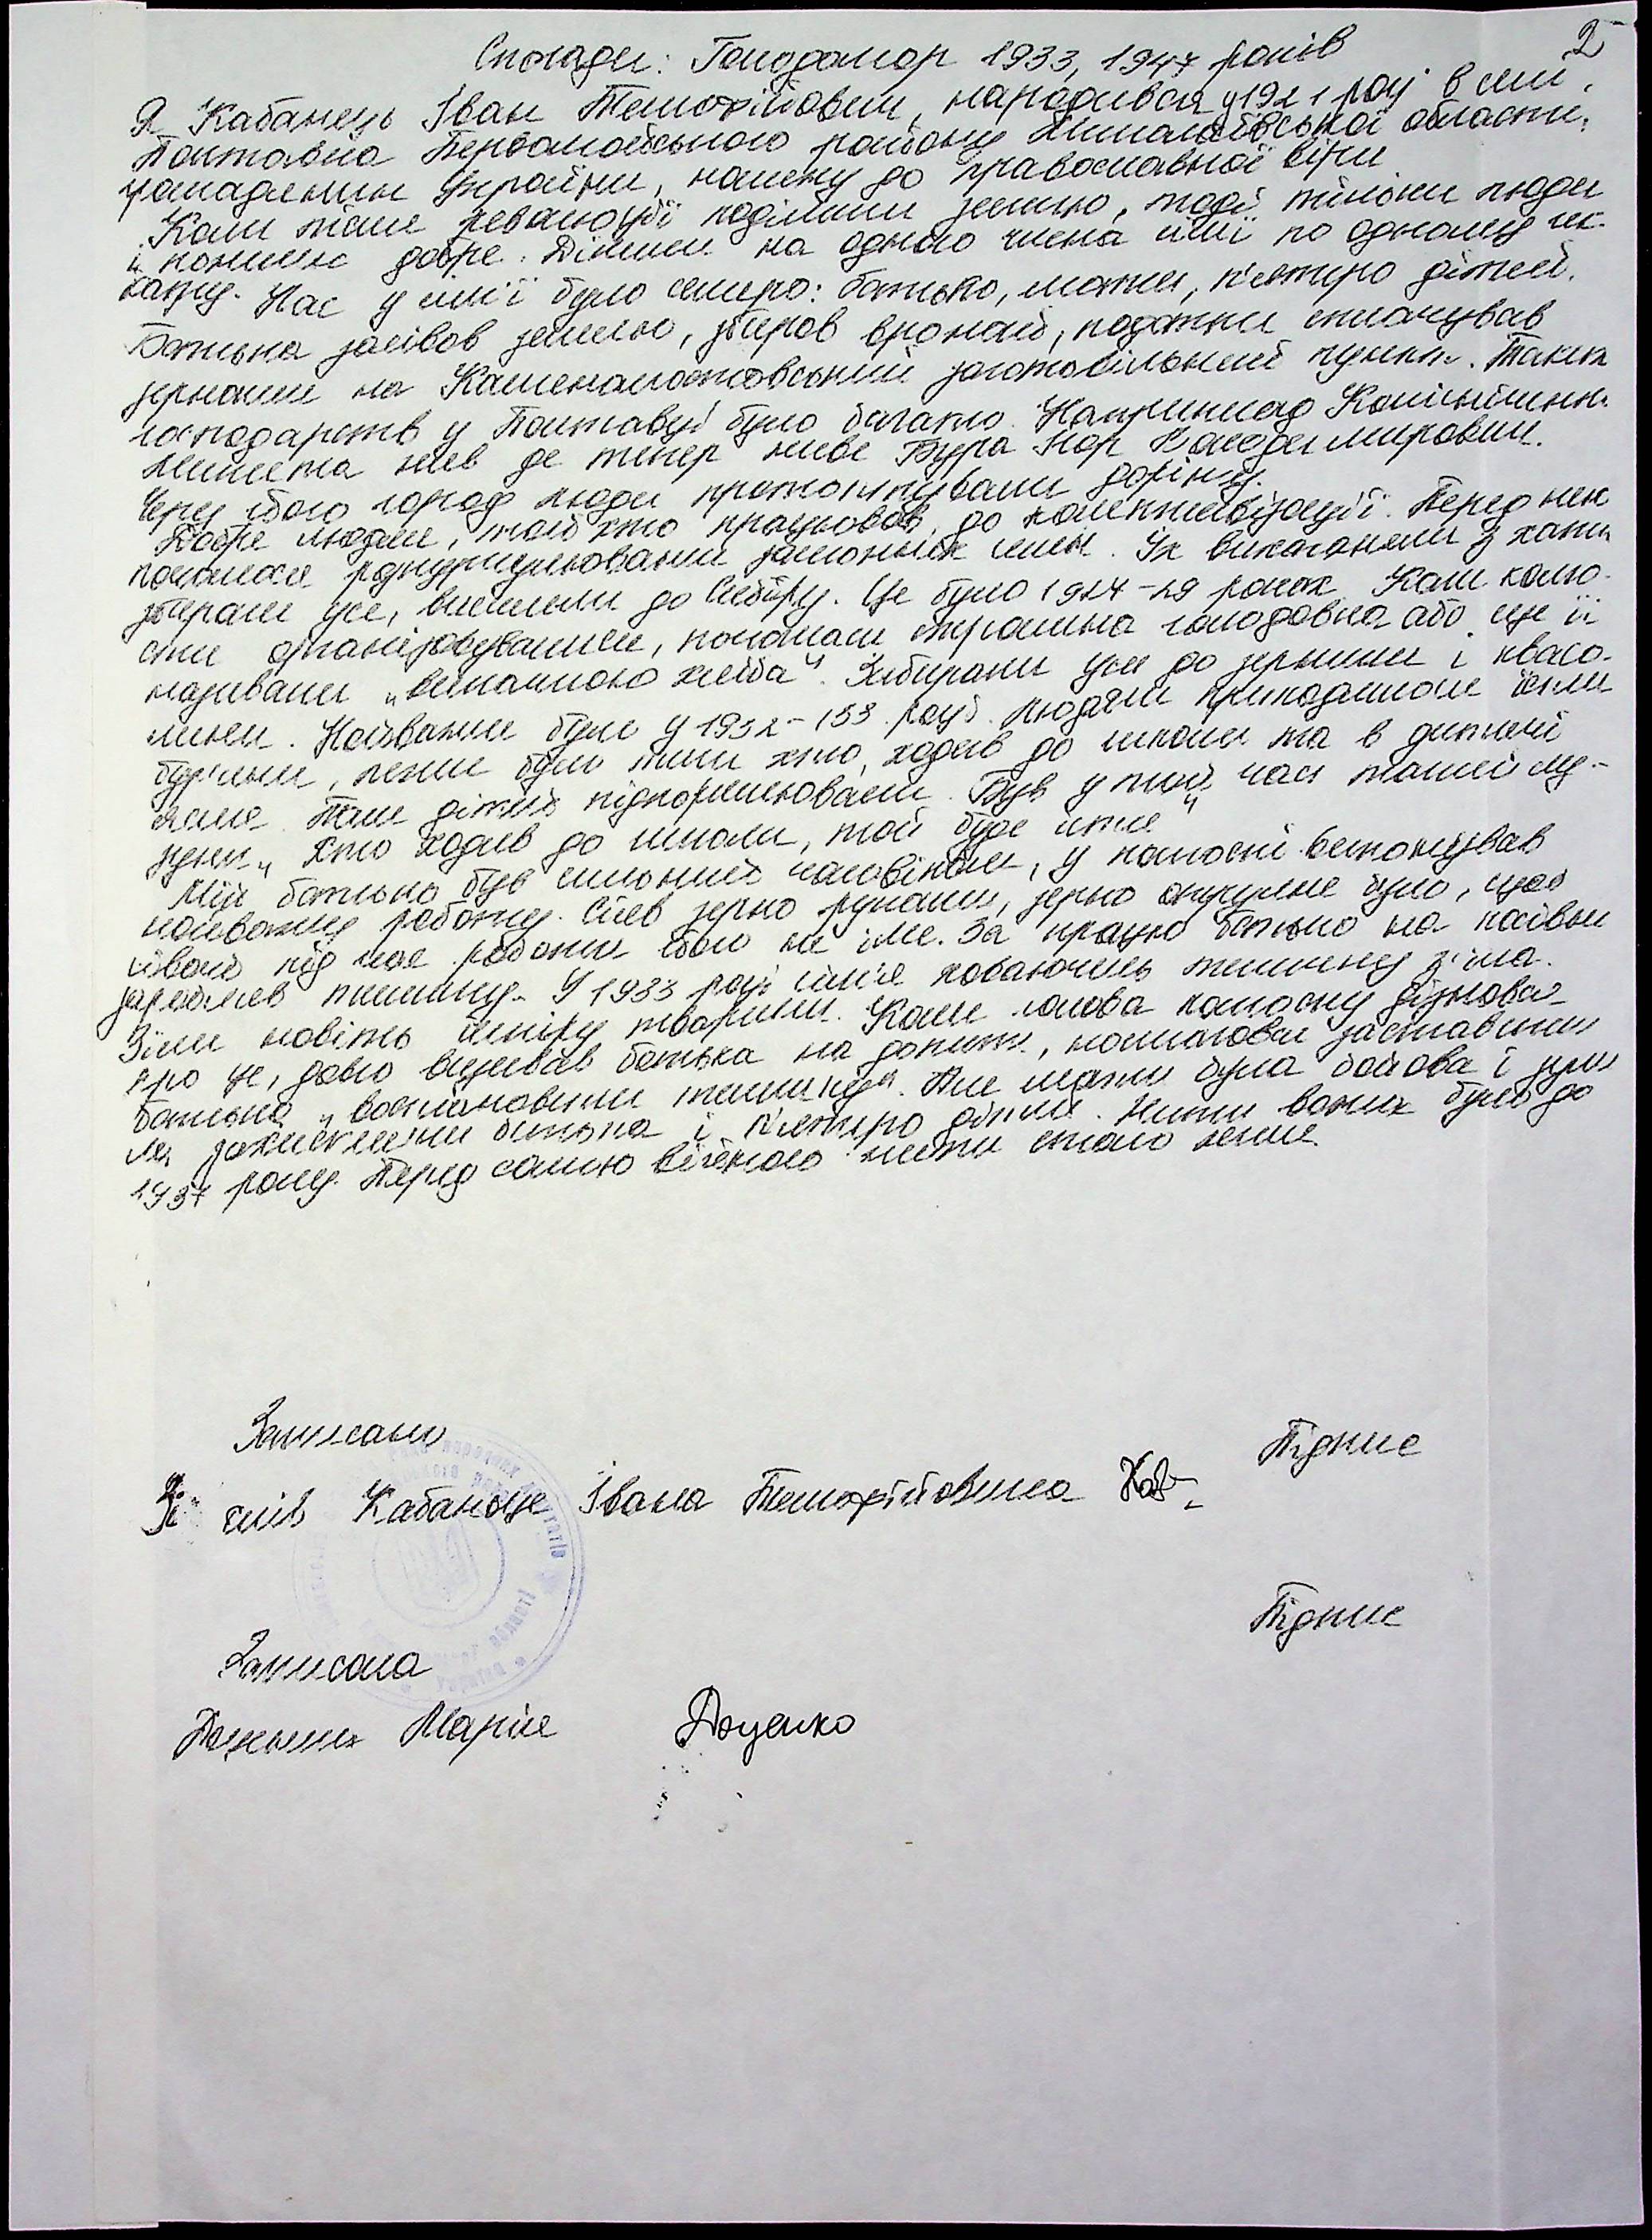 2
Спогади: Голодомор 1933, 1947 років
Я Кабанець Іван Тимофійович, народився у 1921 році в селі
Полтавка Первомайського району Миколаївської області,
громадянин України, належу до православної віри
Коли після революції поділили землю, тоді тільки люди
й пожили добре. Ділили на одного члена сім'ї по одному гек-
тару. Нас у сім'ї було семеро: батько, мати, п'ятеро дітей.
Батько засівав землю, збирав врожай, податки сплачував
зерном на Каменамостовський заготовільний пункт. Таких
господарств у Полтавці було багато. Наприклад
Микита жив де тепер живе Бура Ігор Володимирович.
Через його город люди протоптували доріжку.
Добре людям, той хто працював, до колективізації. Перед нею
почалося розкуркулювання заможних сімей. Їх виганяли з хати
збирали усе, висилали до Сибіру. Це було 1927-29 роках. Коли колго-
спи організовувалися, почалась страшна голодовка або ще її
називали „викачкою хліба". Забирали усе до зернини і квасо-
лини. Найважче було у 1932-133 році. Людям приходилося їсти
бур'яни, легше було тим хто ходив до школи та в дитячі
ясла. Там дітей підкормлювали. Був у той час такий ло-
зунг „Хто ходив до школи, той буде жити"
Мій батько був сильний чоловіком, у колгоспі виконував
найважчу роботу. Сіяв зерно руками, зерно отруєне було, щоб
сівачі під час роботи його не їли. За працю батько на посівні
заробляв пшеницю. У 1933 році сім'я ховаючись телицю з'їла.
З'їли навіть шкіру тварини. Коли голова колгоспу дізнався
про це, довго визивав батька на допити, намагався заставити
батька „востановити телицю". Але мати була бойова і зуміла
захистити батька і п'ятеро дітей. Жити важко було до
1937 року. Перед самою війною жити стало легше.
Записано Підпис
Зі слів Кабанця Івана Тимофійовича Каб-
Підпис
Записала
Марія Доценко